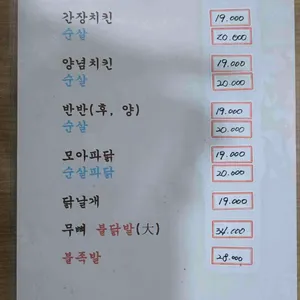 간장치킨 19.000
순살 20.000
양념치킨 19.000
순살 20.000
반반(후, 양) 19.000
순살 20.000
모아파닭 19.000
순살파닭 20.000
닭날개 19.000
무뼈 불닭발(大) 34.000
불족발 28.000